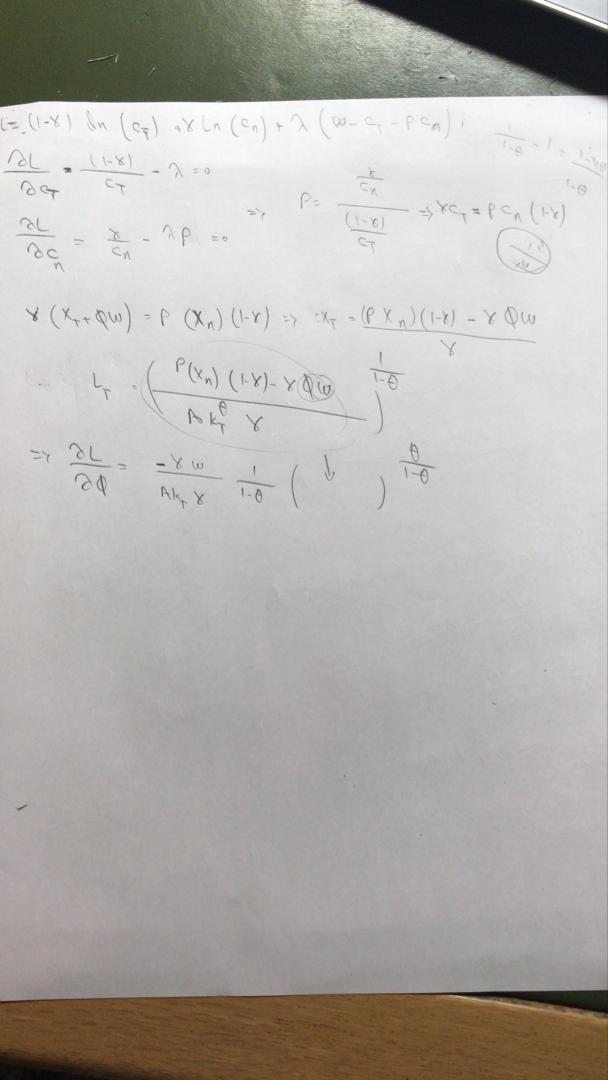 L = (1-γ) ln (C_T) + γ Ln (C_n) + λ (W - C_T - P C_n)
1/(1-θ) - 1 =
∂L/∂C_T = (1-γ)/C_T - λ = 0
⇒ P = (γ/C_n)/((1-γ)/C_T) ⇒ γC_T = P C_n (1-γ)
∂L/∂C_n = γ/C_n - λP = 0
γ (X_T + φW) = P (X_n) (1-γ) ⇒ X_T = ((P X_n) (1-γ) - γ φW)/γ
L_T = ((P(X_n) (1-γ) - γ φW)/(A K_T^θ γ))^(1/(1-θ))
⇒ ∂L/∂φ = (-γ W)/(A K_T γ) 1/(1-θ) ( ↓ )^(θ/(1-θ))